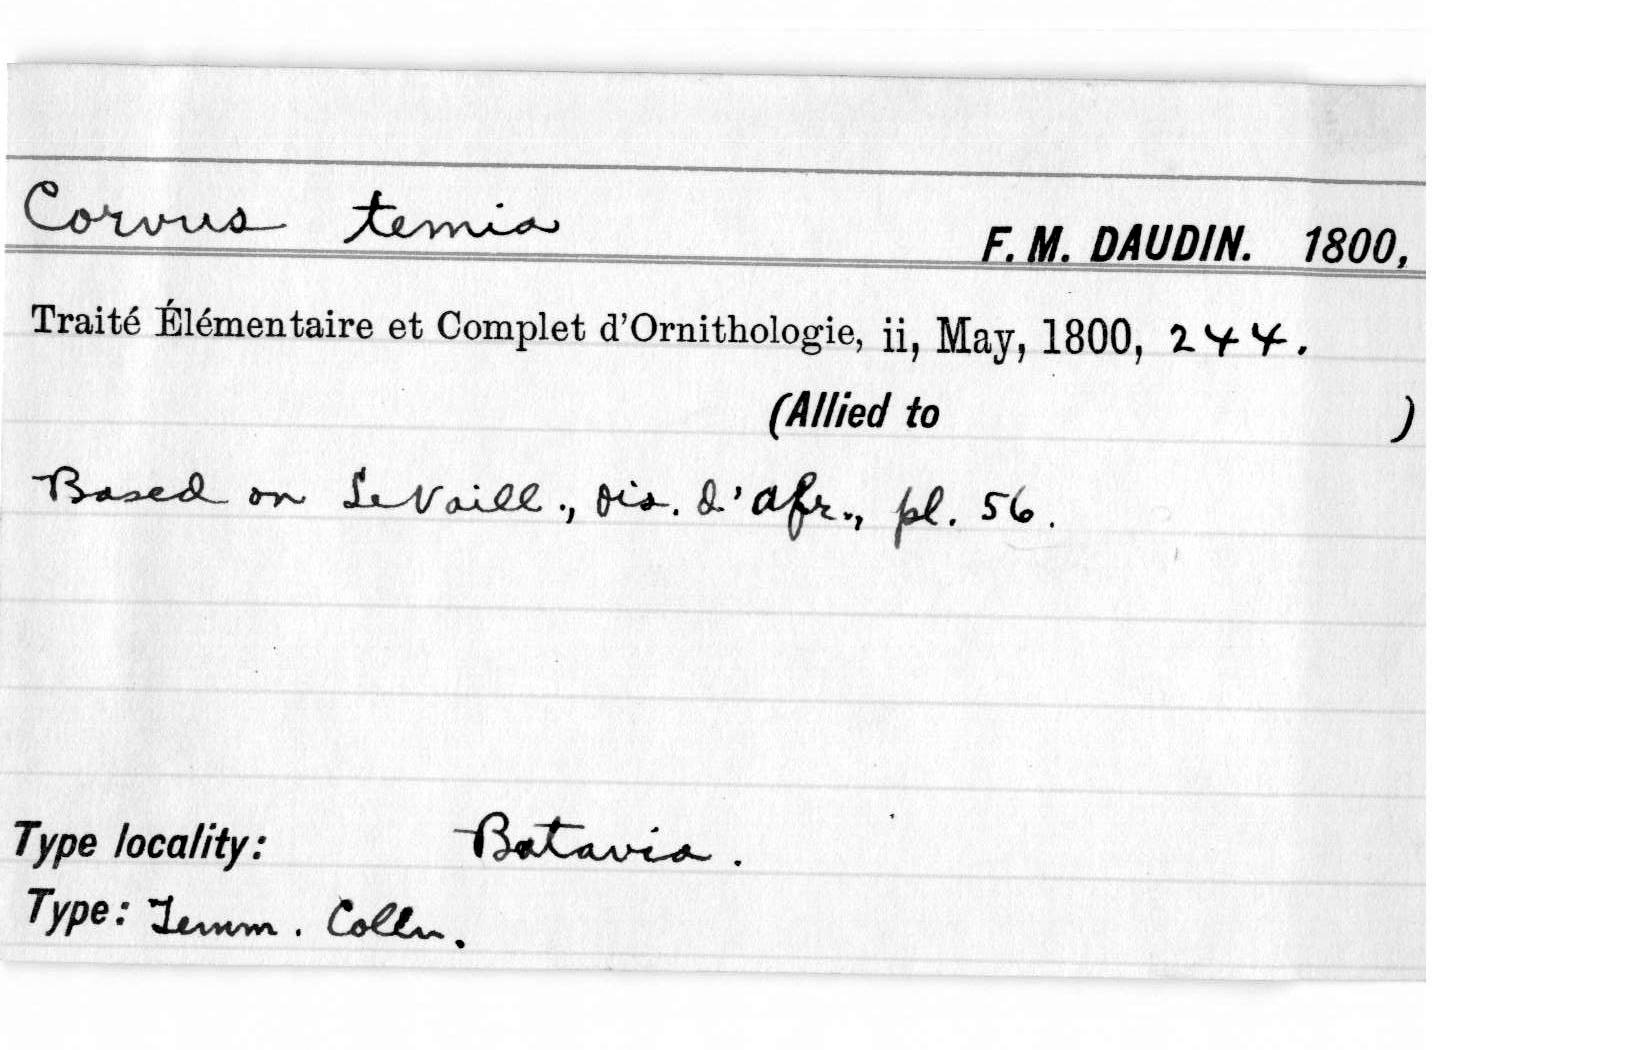 Corvus temia F. M. DAUDIN. 1800,
Traité Élémentaire et Complet d'Ornithologie, ii, May, 1800, 244.
(Allied to )
Based on LeVaill., Ois. d'Afr., pl. 56.
Type locality: Batavia.
Type: Temm. Colln.